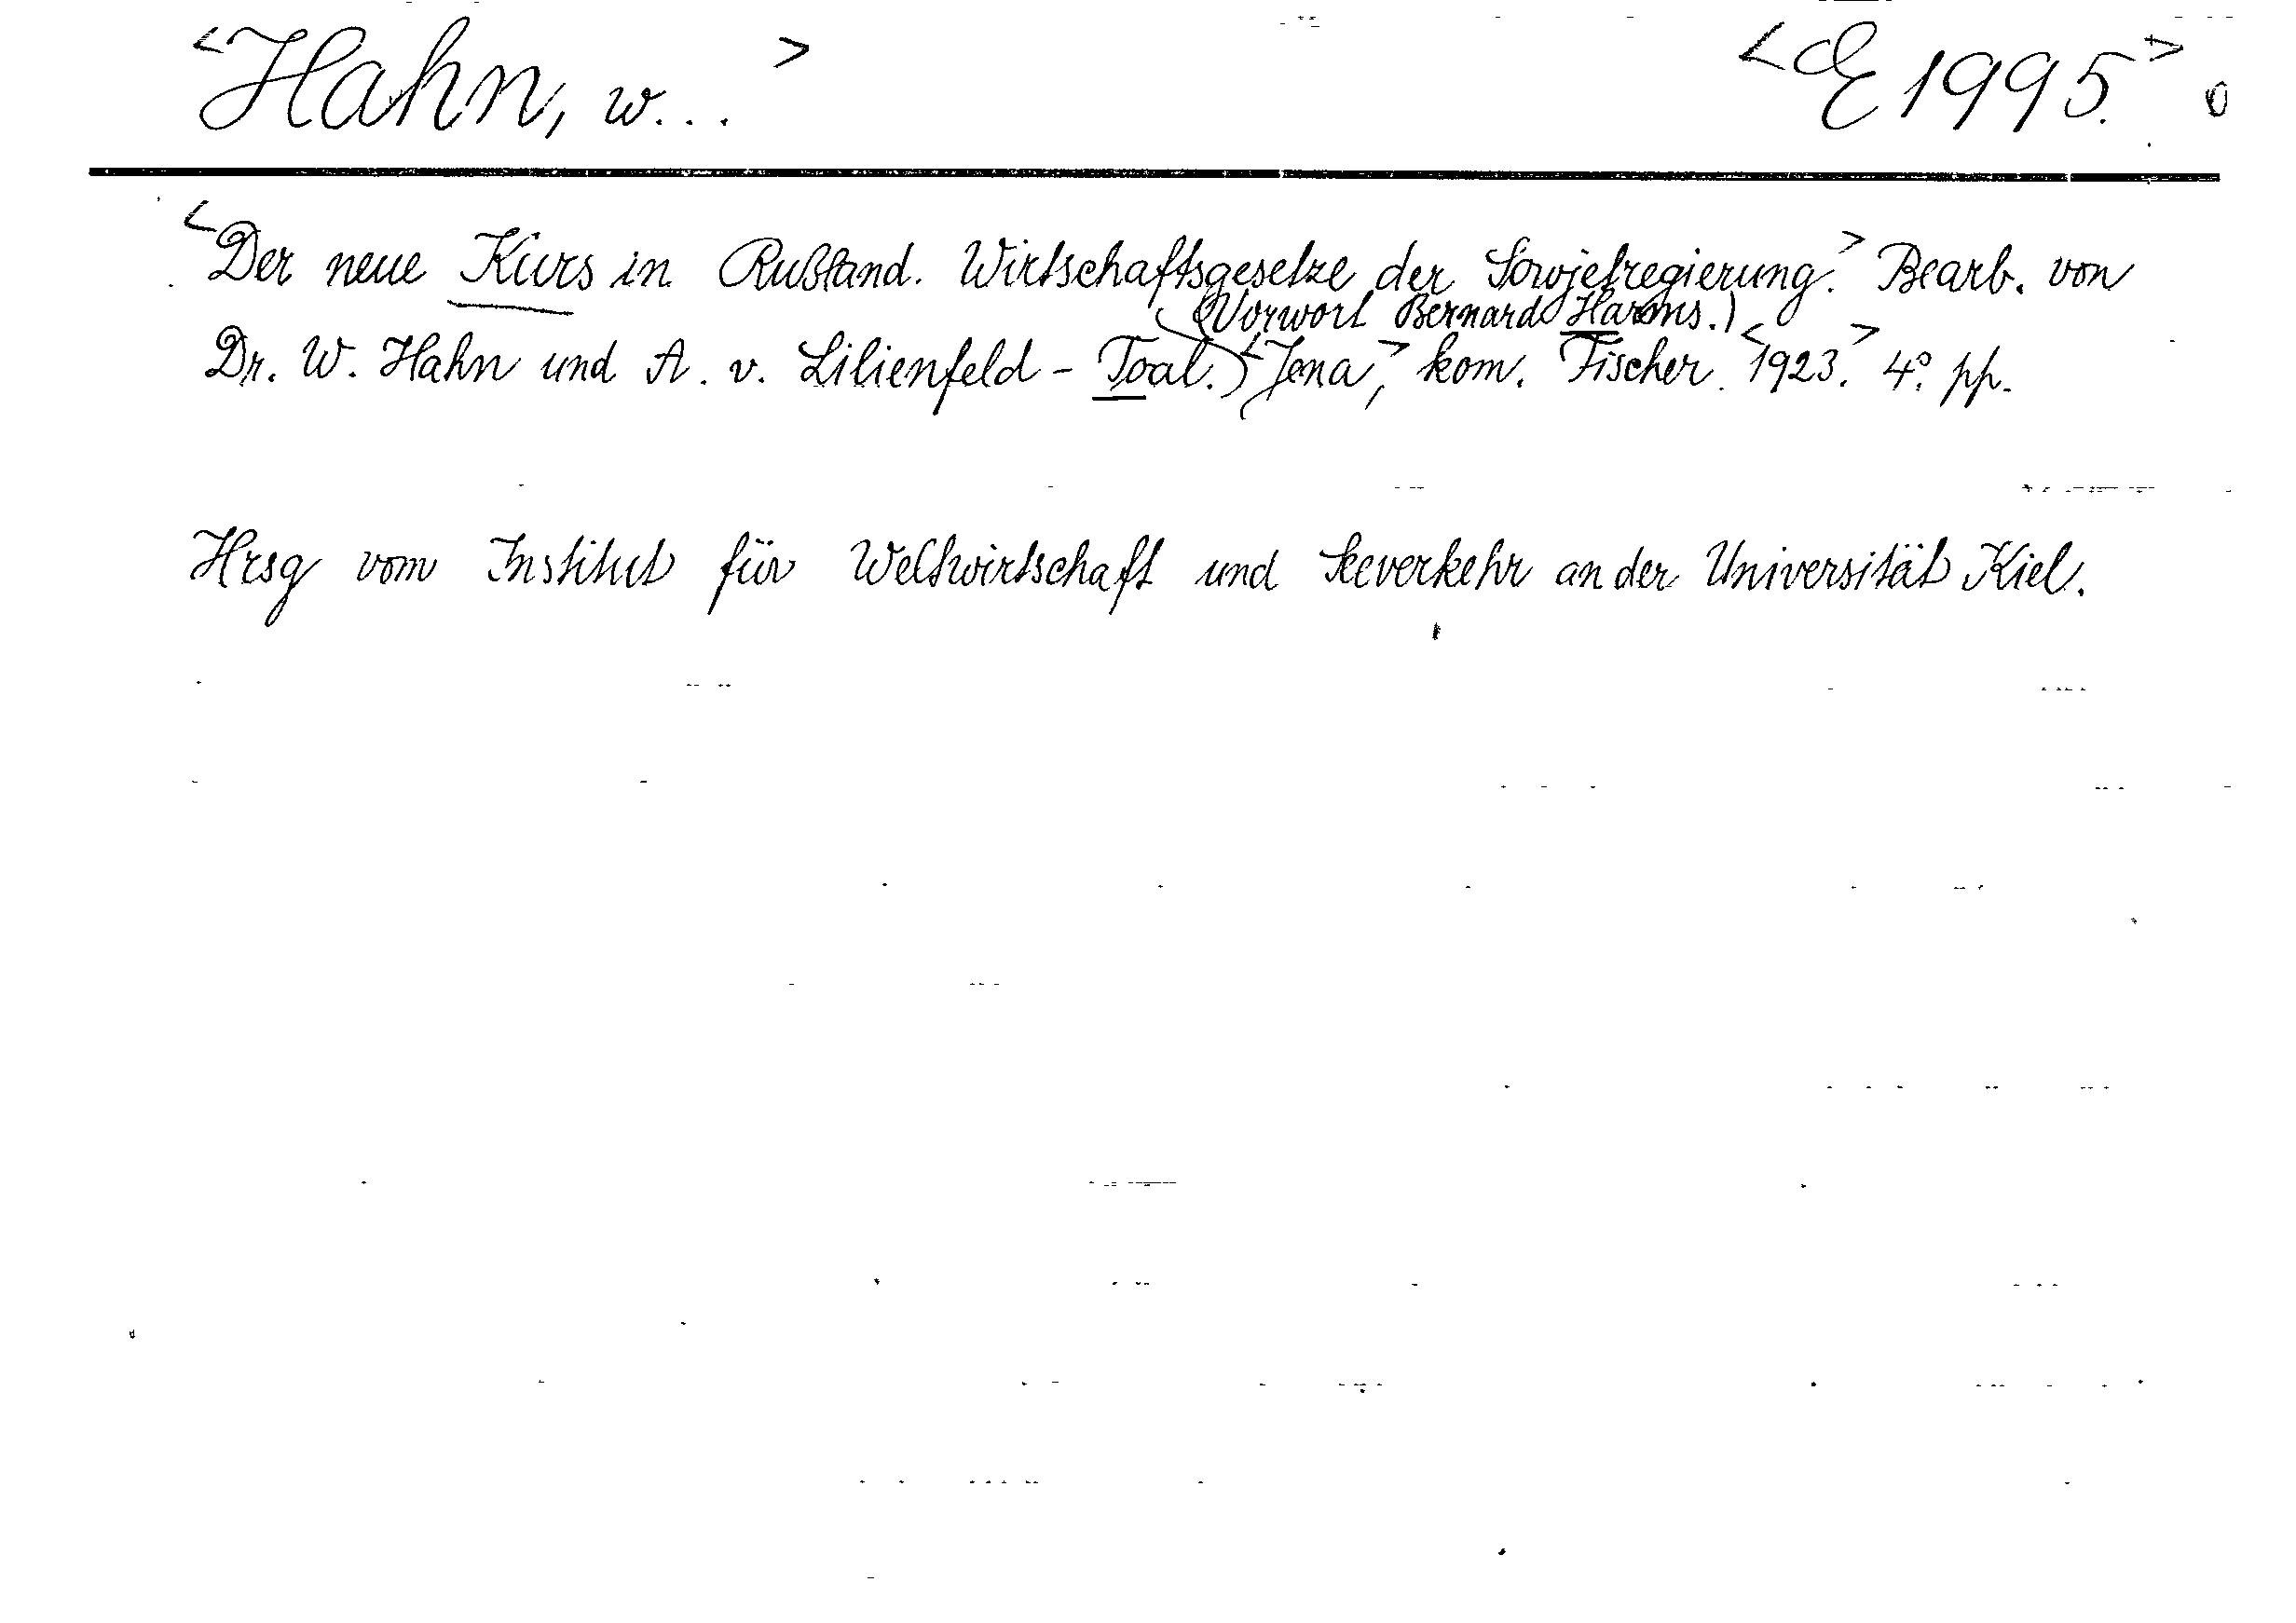 <Hahn, W...> <E 1995.> 0
<Der neue Kurs in Rußland. Wirtschaftsgesetze der Sowjetregierung.> Bearb. von
(Vorwort Bernard Harms.)
Dr. W. Hahn und A. v. Lilienfeld - Toal. <Jena,> kom. Fischer. <1923.> 4°. pp.
Hrsg vom Institut für Weltwirtschaft und Seeverkehr an der Universität Kiel.